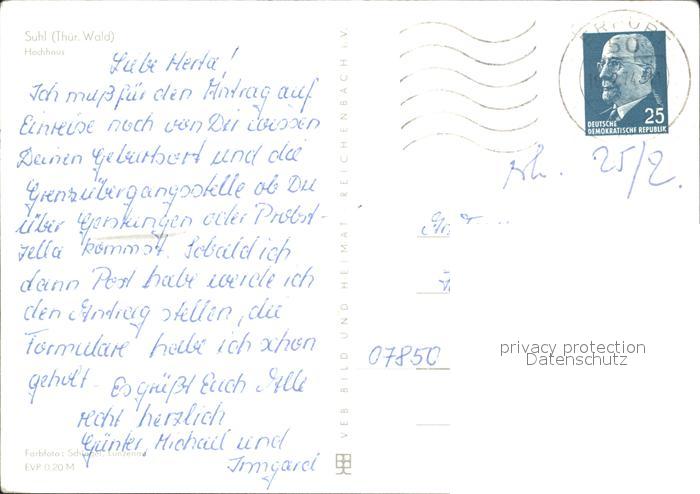 Suhl (Thür. Wald)
Hochhaus
Liebe Herta!
Ich muß für den Antrag auf
Einreise noch von Dir wissen
Deinen Geburtsort und die
Grenzübergangsstelle ob Du
über Gerstungen oder Probst-
zella kommst. Sobald ich
dann Post habe werde ich
den Antrag stellen, die
Formulare habe ich schon
geholt. Es grüßt Euch Alle
recht herzlich
Günter, Michael und
Irmgard
Farbfoto: Lunzenau
EVP 0,20 M
VEB BILD UND HEIMAT REICHENBACH i. V.
ERFURT
50
25
DEUTSCHE
DEMOKRATISCHE REPUBLIK
25/2.
07850
privacy protection
Datenschutz